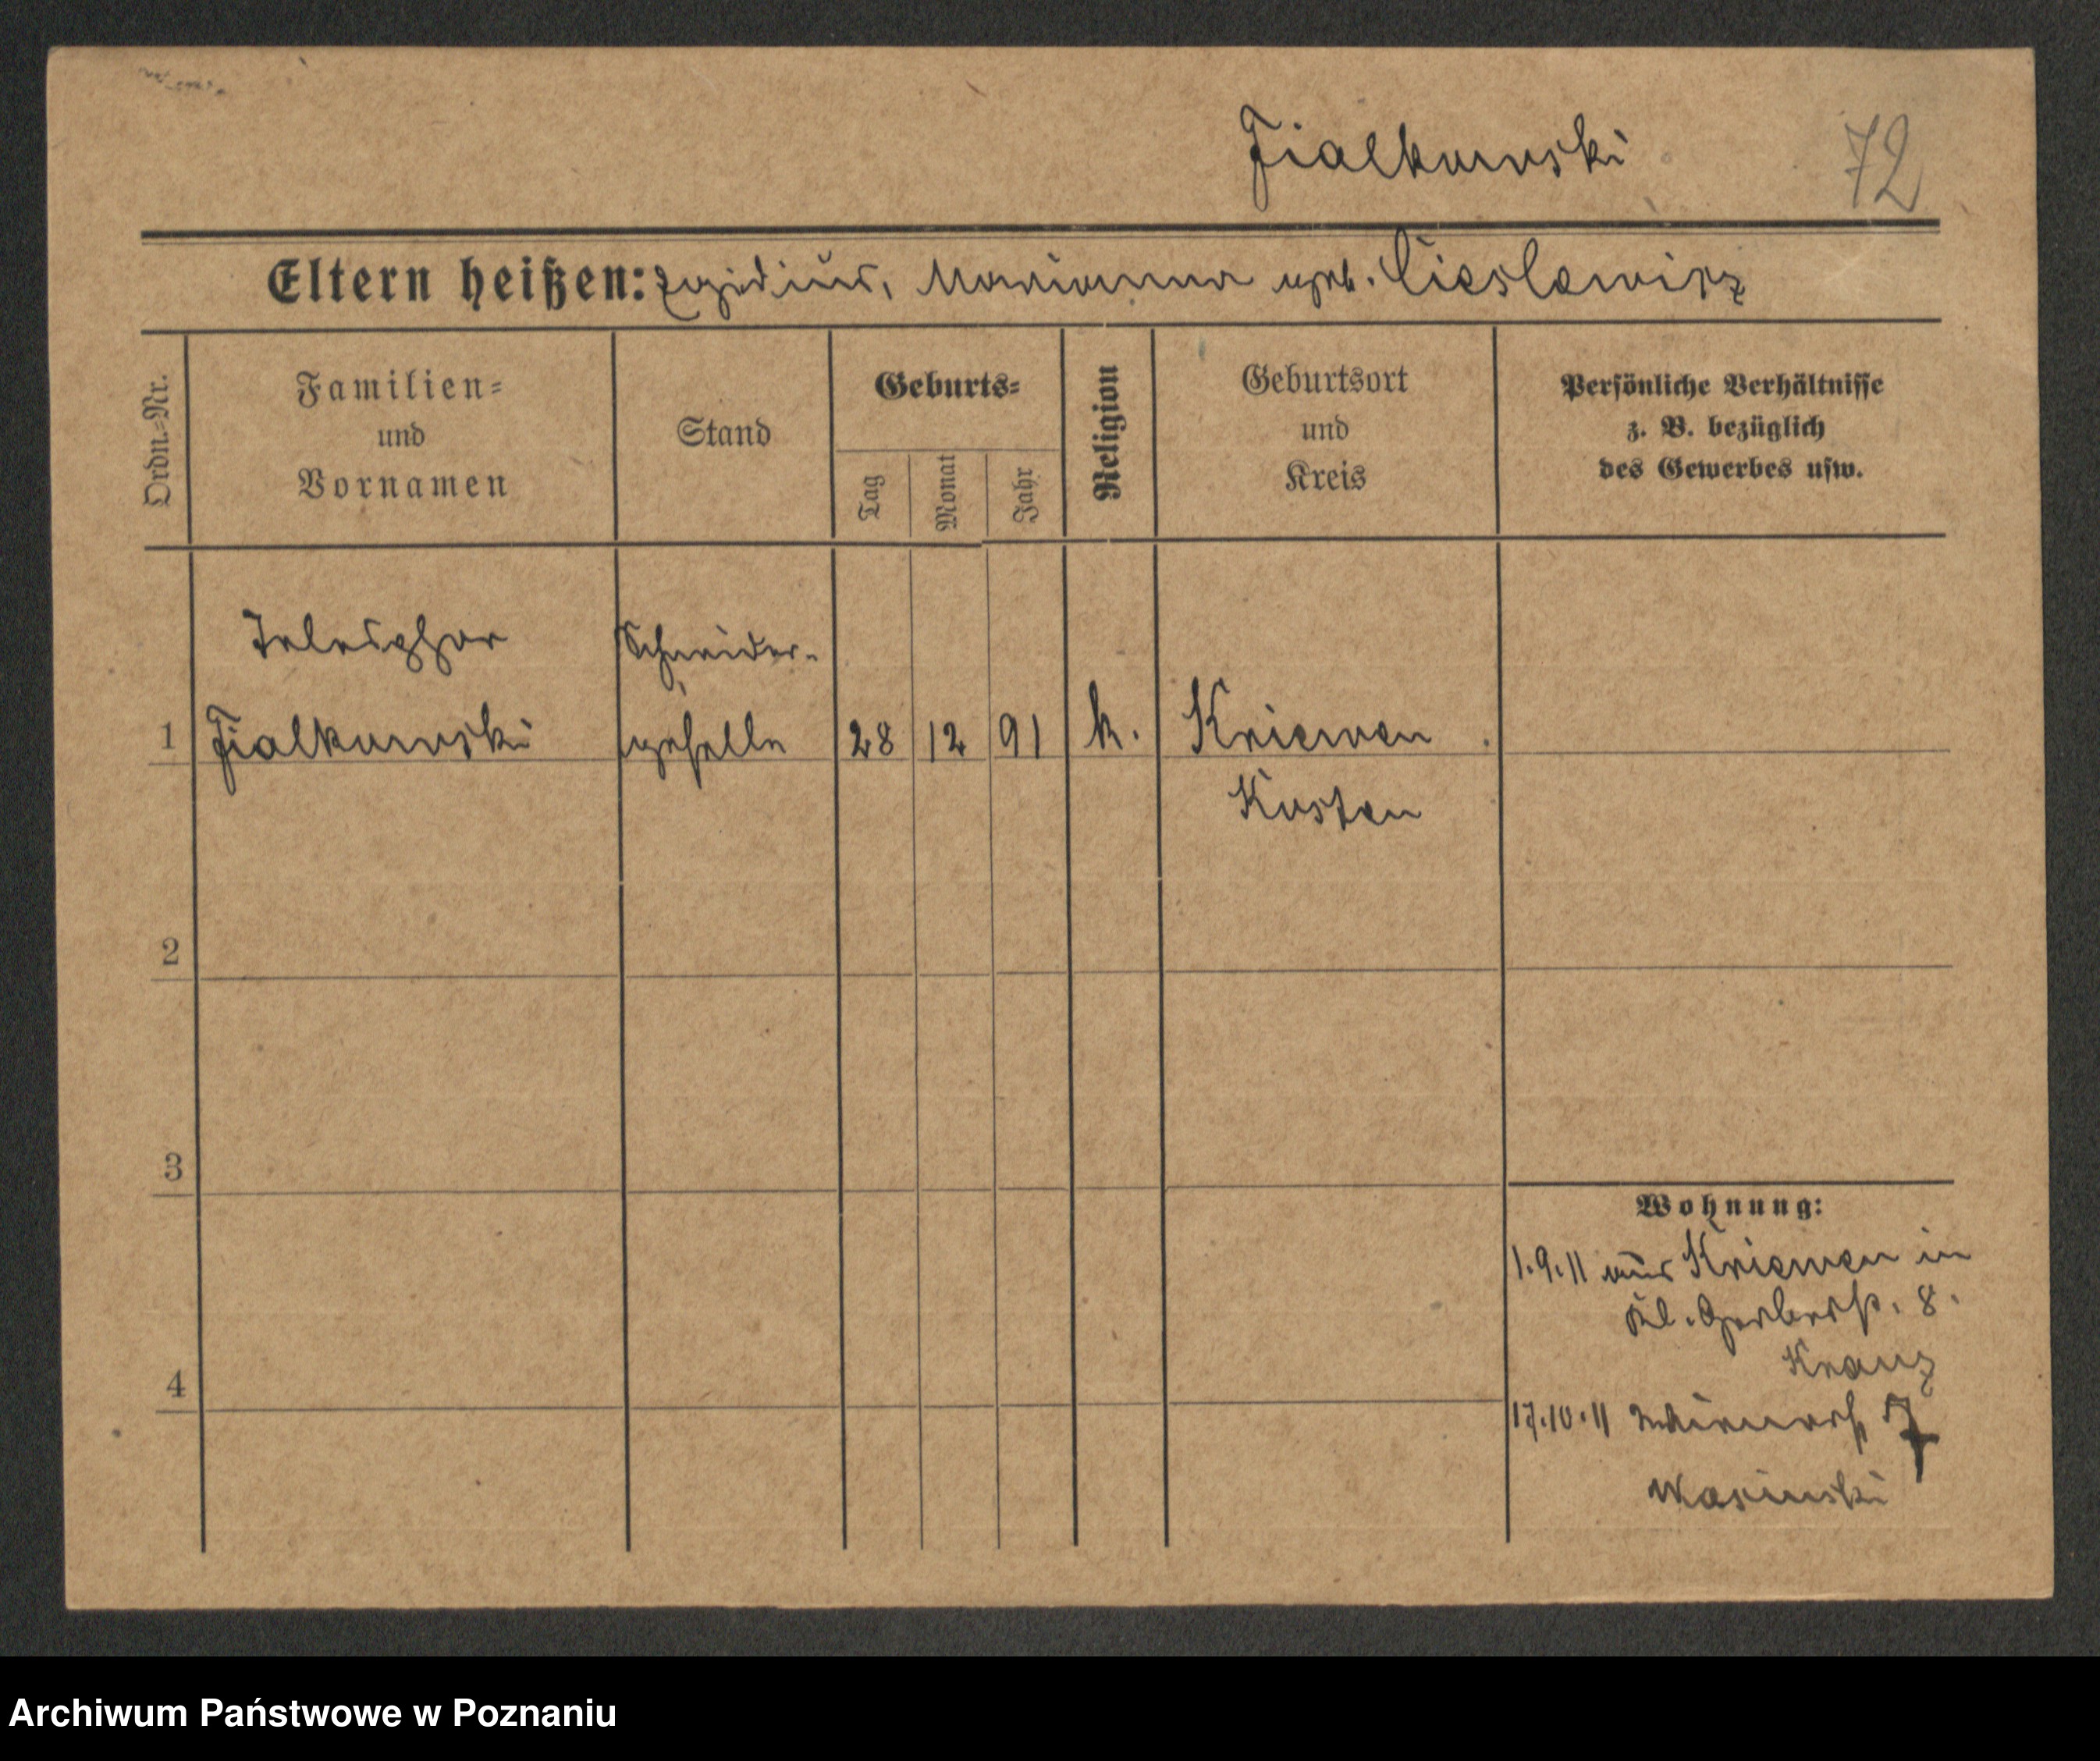 Fialkowski
72
Eltern heißen: Egidius, Marianna geb. Cieslewicz
Ordn.=Nr.
Familien=
und
Vornamen
Stand
Geburts=
Tag
Monat
Jahr
Religion
Geburtsort
und
Kreis
Persönliche Verhältnisse
z. B. bezüglich
des Gewerbes usw.
Telesphor
Schneider-
1 Fialkowski geselle 28 12 91 k. Kriewen
Kosten
2
3
4
Wohnung:
1.9.11 aus Kriewen in
Kl. Gerberst. 8.
Kranz
17.10.11 7
Wasinski
Archiwum Państwowe w Poznaniu